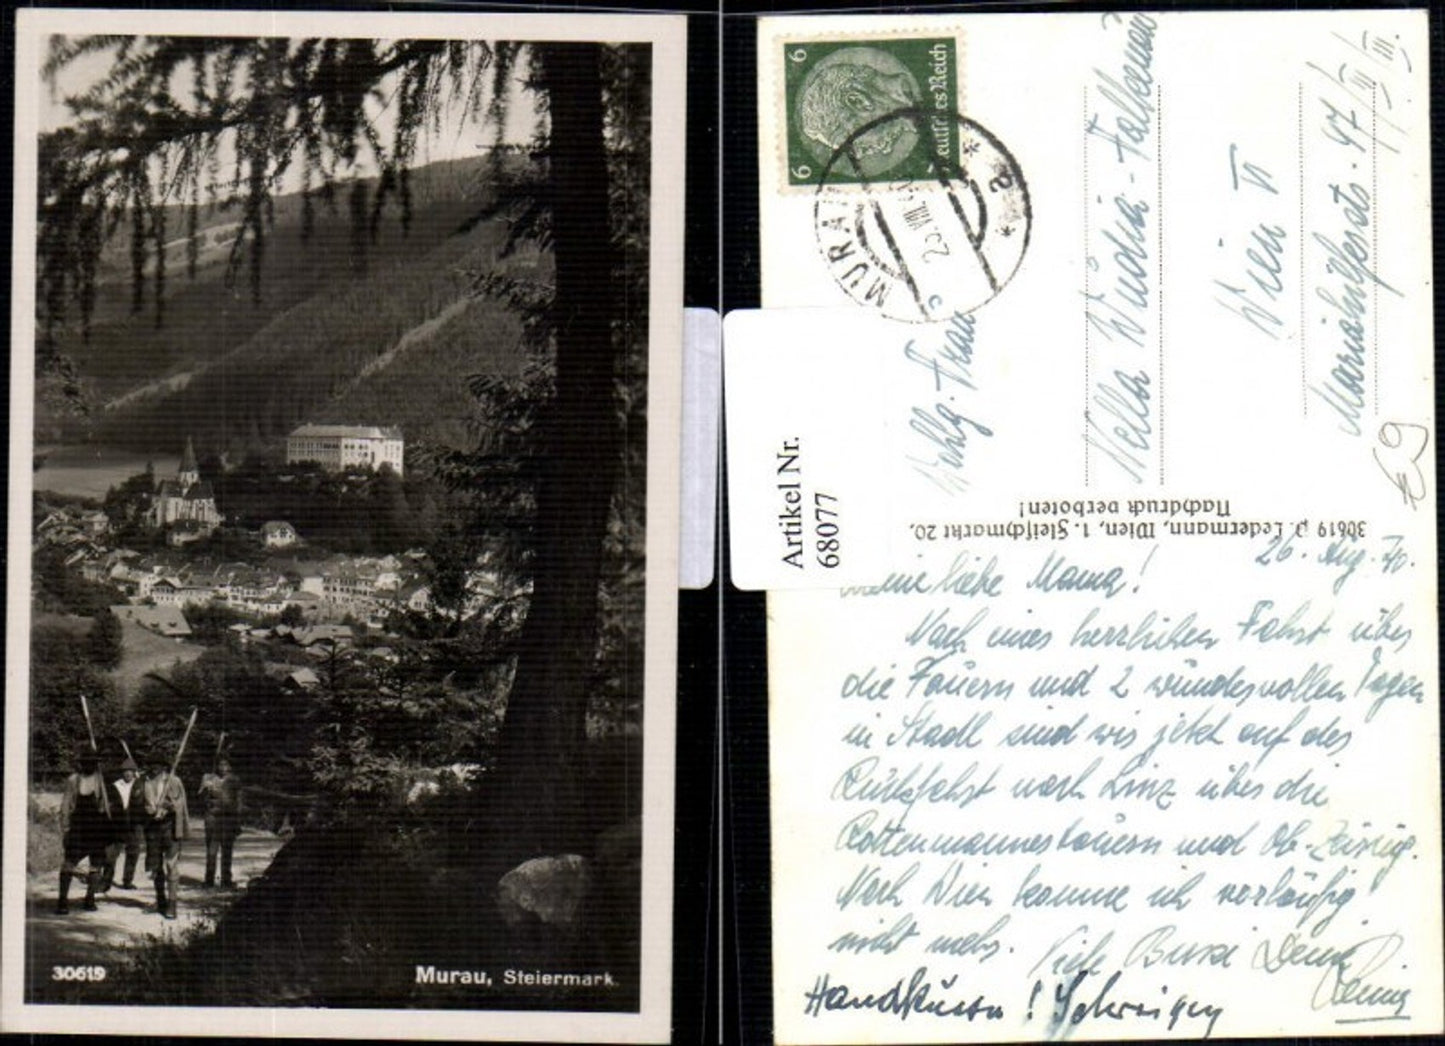 30619
Murau, Steiermark.
6
6
Deutsches Reich
MURAU
a
Artikel Nr.
68077
Wohlg. Frau
Nella
Wien VI
Mariahilferstr. 47/III/III.
€9
30619 P. Ledermann, Wien, 1. Fleischmarkt 20.
Nachdruck verboten!
26. Aug. 40.
Meine liebe Mama!
Nach einer herrlichen Fahrt über
die Tauern und 2 wundervollen Tagen
in Stadl sind wir jetzt auf der
Rückfahrt nach Linz über die
Rottenmannertauern und Ob.-Zeiring.
Nach Wien komme ich vorläufig
nicht mehr. Viele Bussi Deine
Handküsse!